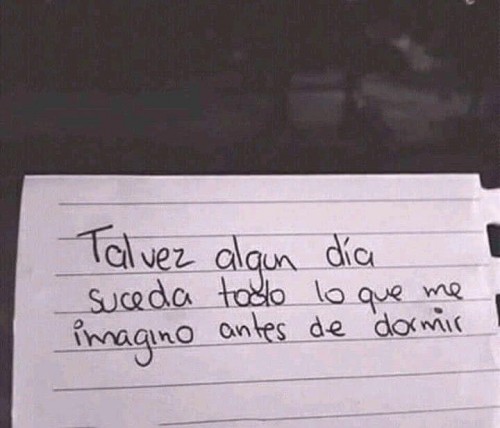 Talvez algun día
suceda todo lo que me
imagino antes de dormir